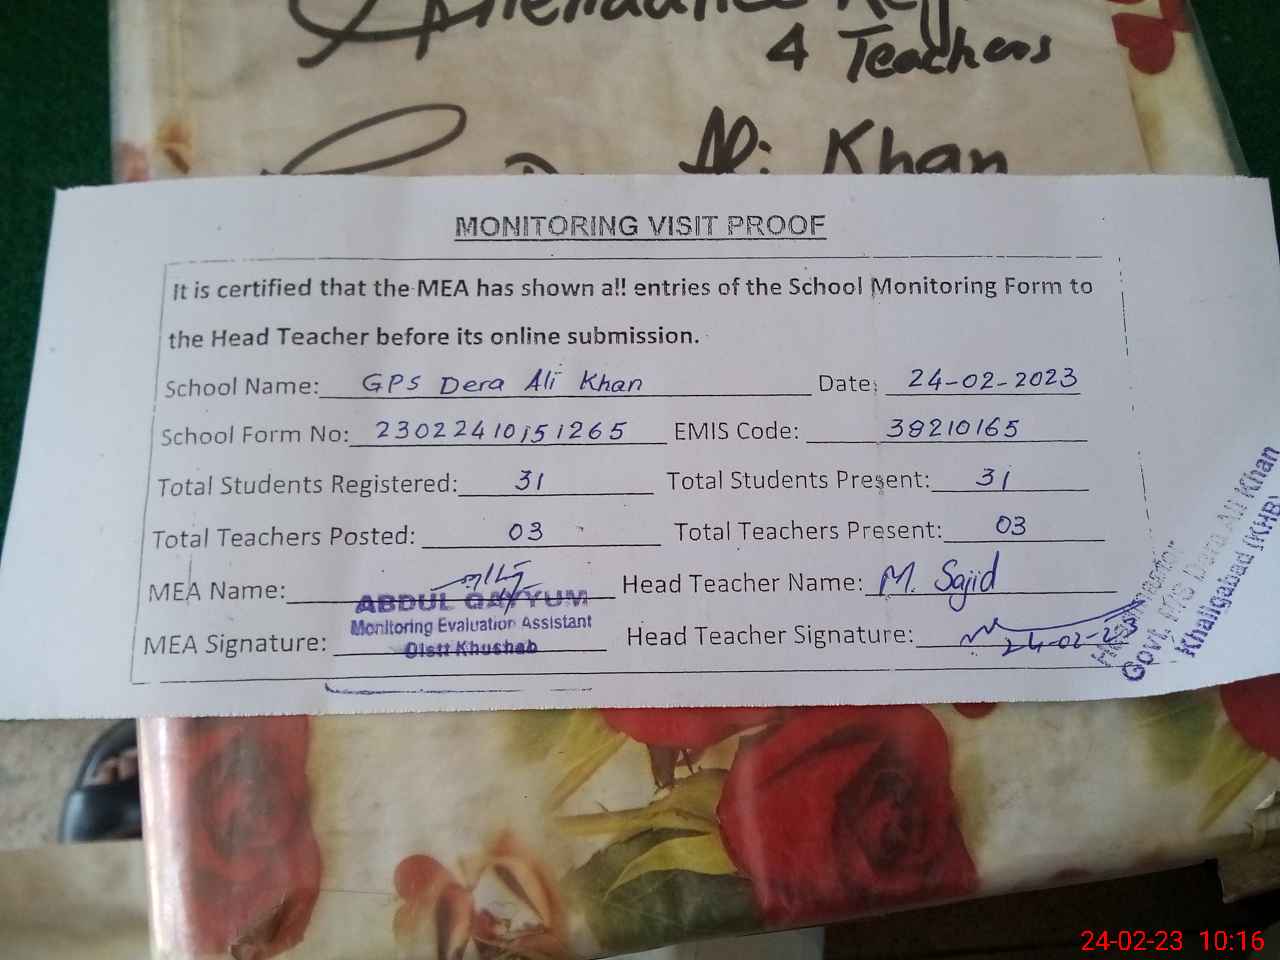 4 Teachers
Ali Khan
MONITORING VISIT PROOF
It is certified that the MEA has shown all entries of the School Monitoring Form to
the Head Teacher before its online submission.
School Name: GPS Dera Ali Khan Date: 24-02-2023
School Form No: 23022410151265 EMIS Code: 38210165
Total Students Registered: 31 Total Students Present: 31
Total Teachers Posted: 03 Total Teachers Present: 03
MEA Name: Head Teacher Name: M. Sajid
ABDUL QAYYUM
Monitoring Evaluation Assistant
Distt Khushab
MEA Signature: Head Teacher Signature: 24-02-23
Govt. P/S Dera Ali Khan
Khaliqabad (KHB)
24-02-23 10:16